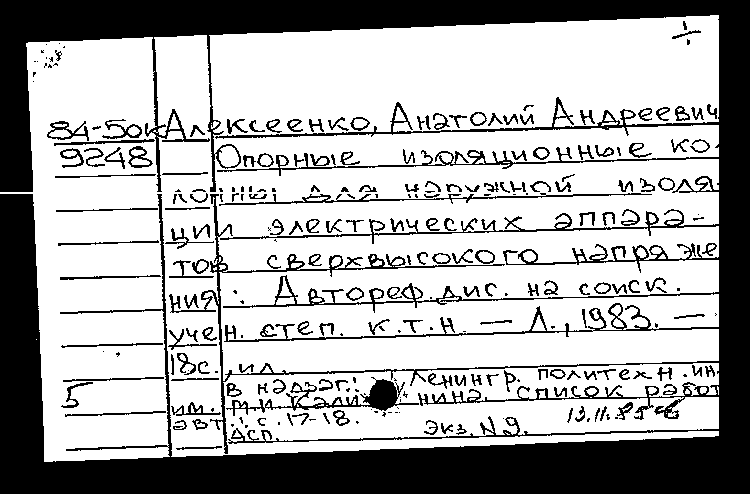 ÷
84-50к Алексеенко, Анатолий Андреевич
9248 Опорные изоляционные ко-
лонны для наружной изоля-
ции электрических аппара-
тов сверхвысокого напряже
ния : Автореф. дис. на соиск.
учен. степ. к.т.н. — Л., 1983. —
18с., ил.
5 В надзаг.: Ленингр. политехн. ин.
им. М.И. Кали нина. Список работ
авт.: с. 17-18.
Асп. Экз. N 9. 13.11.85